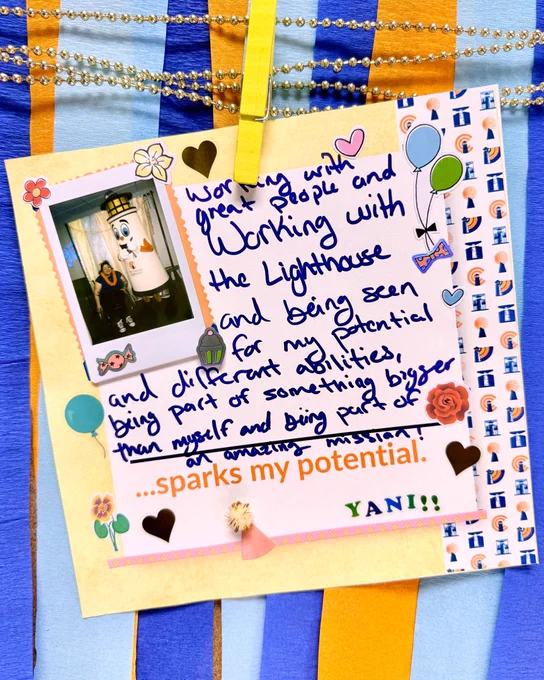 Working with
great people and
Working with
the Lighthouse
and being seen
for my potential
and different abilities,
being part of something bigger
than myself and being part of
an amazing mission!
...sparks my potential.
YANI!!